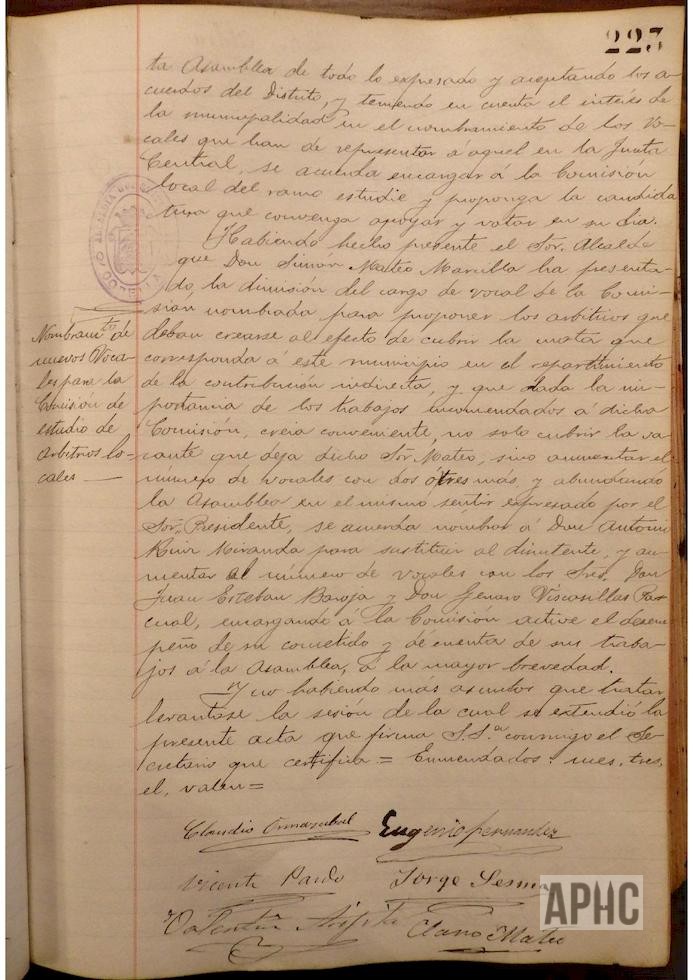 223
ta Asamblea de todo lo expresado y aceptando los a-
cuerdos del Distrito, y teniendo en cuenta el interés de
la municipalidad en el nombramiento de los Vo-
cales que han de representar á aquel en la Junta
Central, se acuerda encargar á la Comisión
local del ramo estudie y proponga la candida
tura que convenga apoyar y votar en su dia.
Habiendo hecho presente el Sor. Alcalde
que Don Simón Mateo Marcilla ha presenta-
do, la dimisión del cargo de vocal de la Comi-
sión nombrada para proponer los arbitrios que
deban crearse al efecto de cubrir la cuota que
corresponda á este municipio en el repartimiento
de la contribución indirecta, y que dada la im-
portancia de los trabajos encomendados á dicha
Comisión, creia conveniente, no solo cubrir la va-
cante que deja dicho Sor. Mateo, sino aumentar el
número de vocales con dos ó tres más, y abundando
la Asamblea en el mismo sentir expresado por el
Sor. Presidente, se acuerda nombrar á Don Antonio
Ruiz Miranda para sustituir al dimitente, y au-
mentar el número de vocales con los Sres. Don
Juan Esteban Baroja y Don Genaro Viscasillas Pas-
cual, encargando á la Comisión active el desem
peño de su cometido y dé cuenta de sus traba-
jos á la Asamblea, á la mayor brevedad.
Y no habiendo más asuntos que tratar
levantose la sesión de la cual se extendió la
presente acta que firma S.S.ª conmigo el Se-
cretario que certifica = Enmendados: tres,
el, valen =
Nombramto. de
nuevos Voca-
les para la
Comisión de
estudio de
arbitrios lo-
cales —
CORELLA
Claudio Ormazabal Eugenio Fernandez
Vicente Pardo Jorge Sesma
Valentin Mateo
APHC